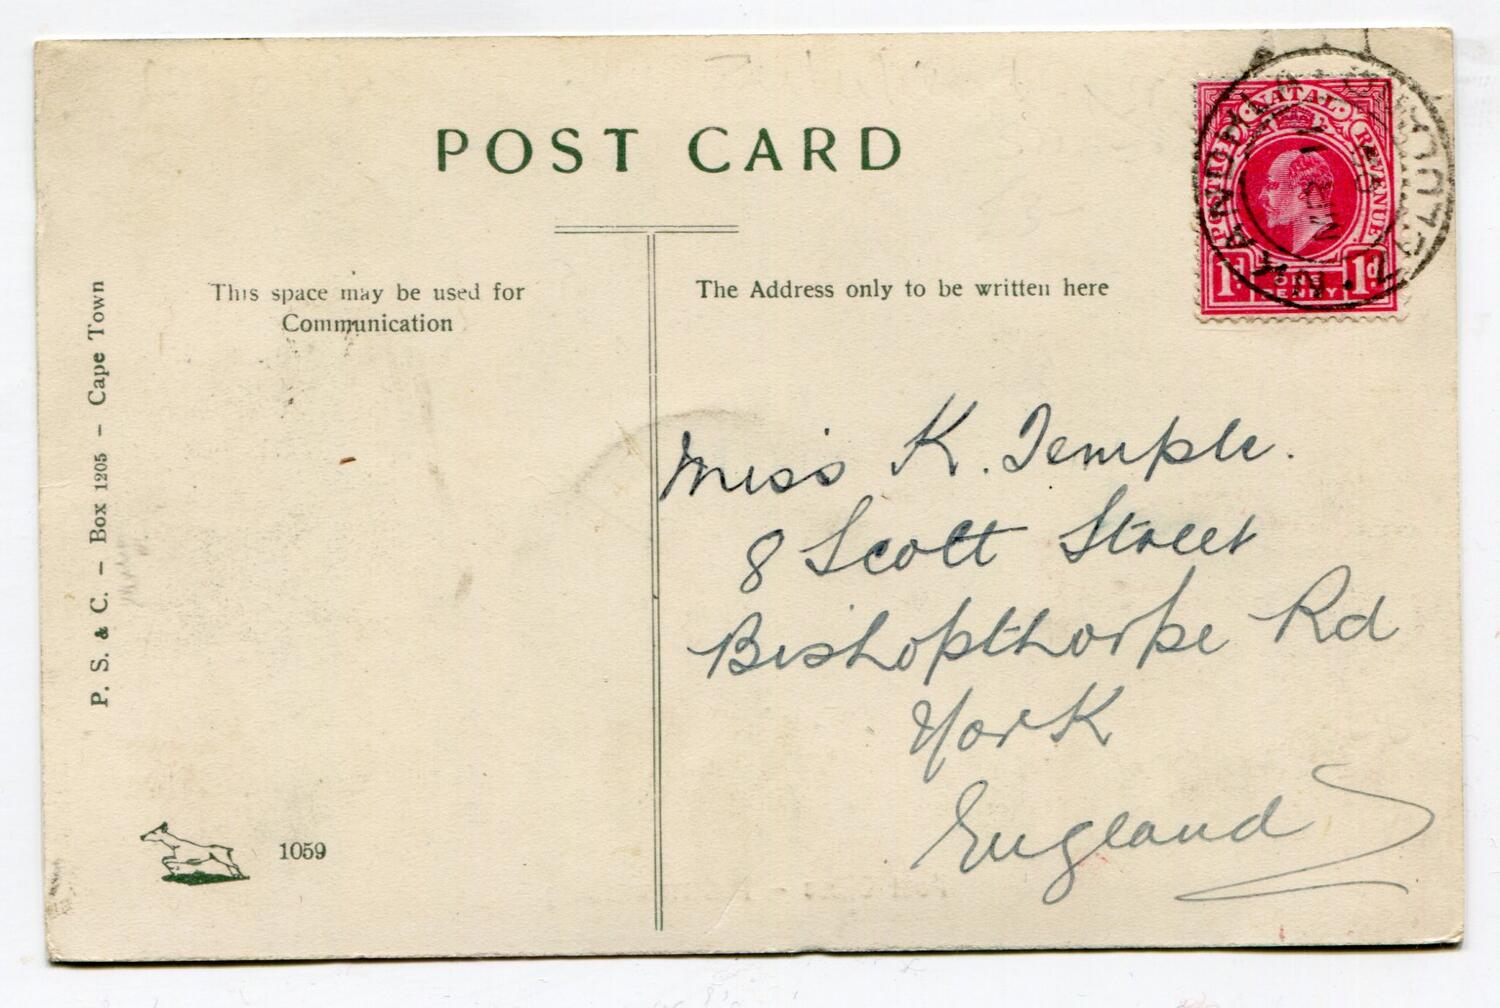 POST CARD
This space may be used for
Communication
The Address only to be written here
P. S. & C. – Box 1205 – Cape Town
1059
POSTAGE NATAL REVENUE
1d ONE PENNY 1d
NKANDHLA
ZULULAND
Miss K. Temple.
8 Scott Street
Bishopthorpe Rd
York
England